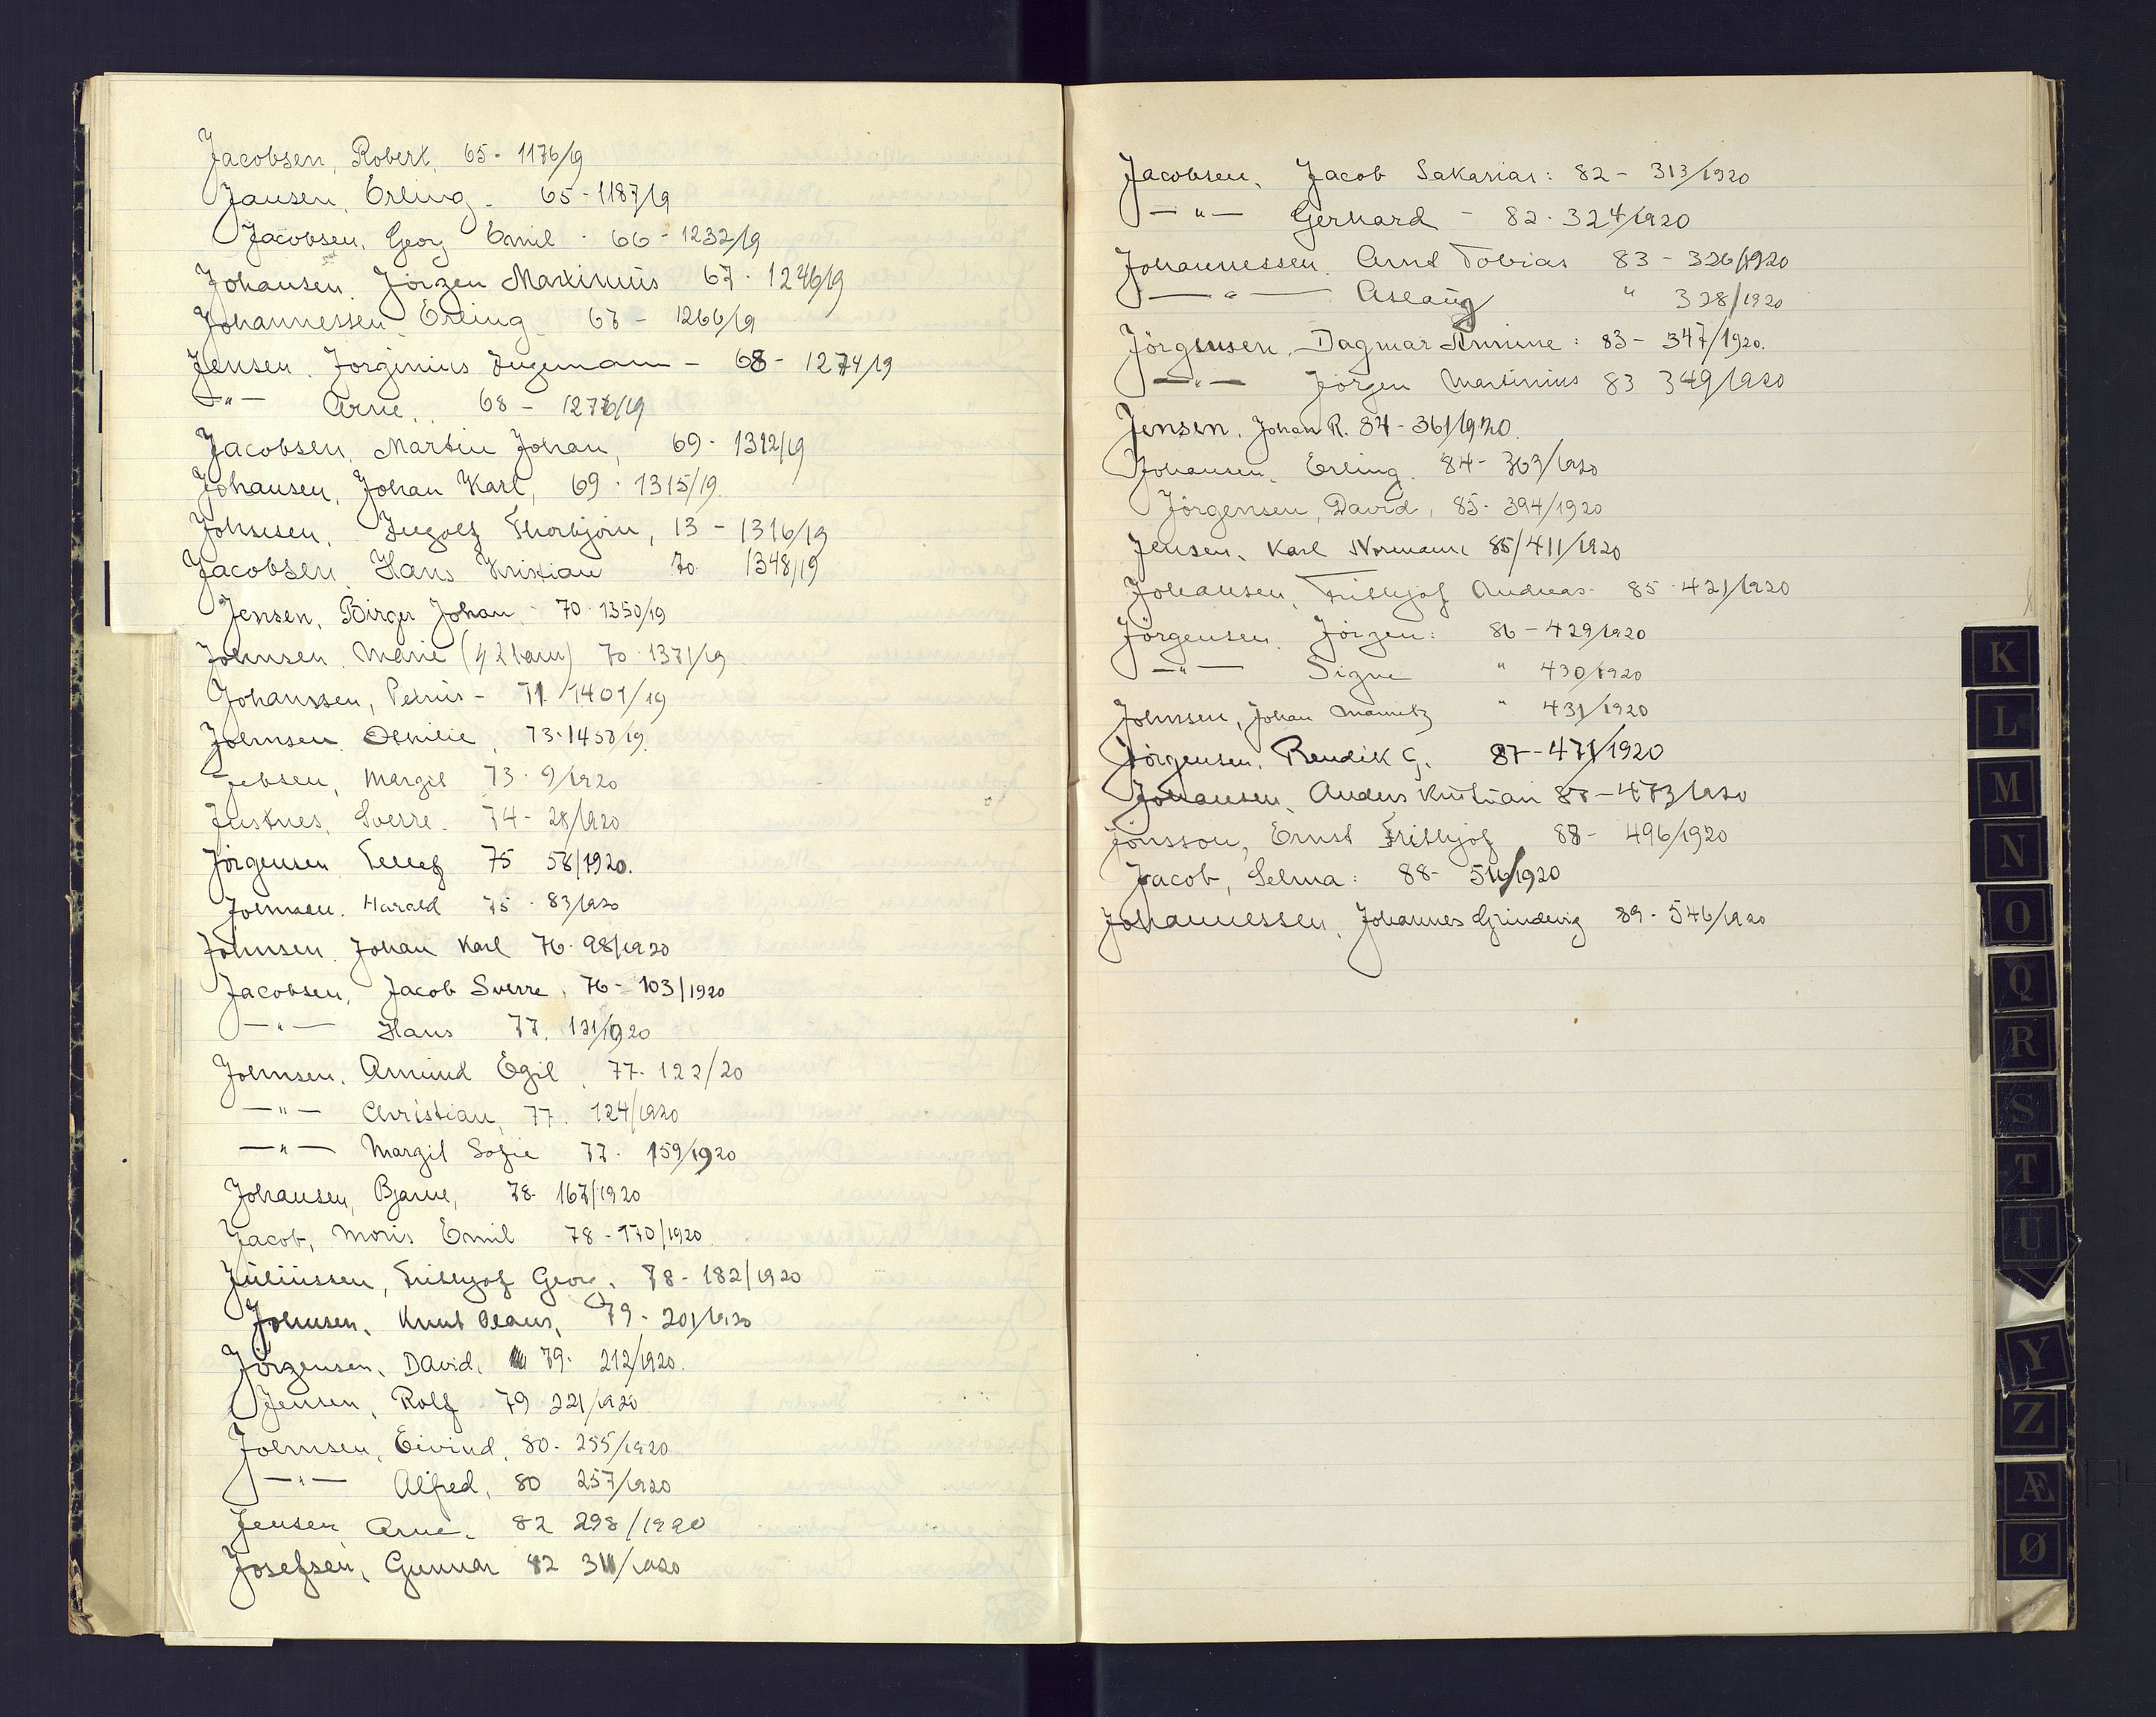 Jacobsen, Robert, 65 - 1176/19
Jansen, Erling - 65 - 1187/19
Jacobsen, Georg Emil - 66 - 1232/19
Johansen, Jörgen Maximus 67 - 1246/19
Johannessen, Erling 67 - 1266/19
Jensen, Jorginius Ingemann - 68 - 1274/19
—"— Arne, 68 - 1276/19
Jacobsen, Martin Johan, 69 - 1312/19
Johansen, Johan Karl, 69 - 1315/19
Johnsen, Ingolf Thorbjörn, 13 - 1316/19
Jacobsen, Hans Kristian 70 1348/19
Jensen, Birger Johan - 70 - 1350/19
Johnsen, Marie 70 - 1371/19
Johanssen, Petrus - 71 1401/19
Johnsen, Othilie, 73 - 1458/19
Jebsen, Margit 73 - 9/1920
Justnes, Sverre - 74 - 28/1920
Jörgensen Tellef 75 58/1920.
Johnsen, Harald 75 - 83/1920
Johnsen, Johan Karl 76 - 98/1920
Jacobsen, Jacob Sverre, 76 - 103/1920
—"— Hans 77. 121/1920
Johnsen, Amund Egil, 77 - 122/20
—"— Christian, 77. 124/1920
—"— Margit Sofie 77. 159/1920
Johansen, Bjarne, 78 - 167/1920
Jacob, Moris Emil 78 - 170/1920
Juliussen, Frithjof Georg, 78 - 182/1920
Johnsen, Knut Olaus, 79 - 201/1920
Jörgensen, David, 79 - 212/1920.
Jensen, Rolf 79 221/1920
Johnsen, Eivind, 80 - 255/1920
—"— Alfred, 80 257/1920
Jensen Arne, 82 298/1920
Josefsen, Gunnar 82 311/1920
Jacobsen, Jacob Sakarias: 82 - 313/1920
—"— Gerhard - 82 - 324/1920
Johannessen, Arnt Tobias 83 - 326/1920
—"— Aslaug " 328/1920
Jörgensen, Dagmar Annine: 83 - 347/1920.
—"— Jörgen Martinius 83 349/1920
Jensen, Johan R. 84 - 361/1920.
Johansen, Erling, 84 - 363/1920
Jörgensen, David, 85 - 394/1920
Jensen, Karl Normann 85/411/1920
Johansen, Frithjof Andreas - 85 - 421/1920
Jörgensen, Jörgen: 86 - 429/1920
—"— Signe " 430/1920
Johnsen, Johan Mauritz " 431/1920
Jörgensen, Bendik G. 87 - 471/1920
Johansen, Anders Kristian 87 - 473/1920
Jönsson, Ernst Frithjof 88 - 496/1920
Jacob, Selma: 88 - 516/1920
Johannessen, Johannes Grindevig 89 - 546/1920
K
L
M
N
O
Q
R
S
T
U
Y
Z
Æ
Ø